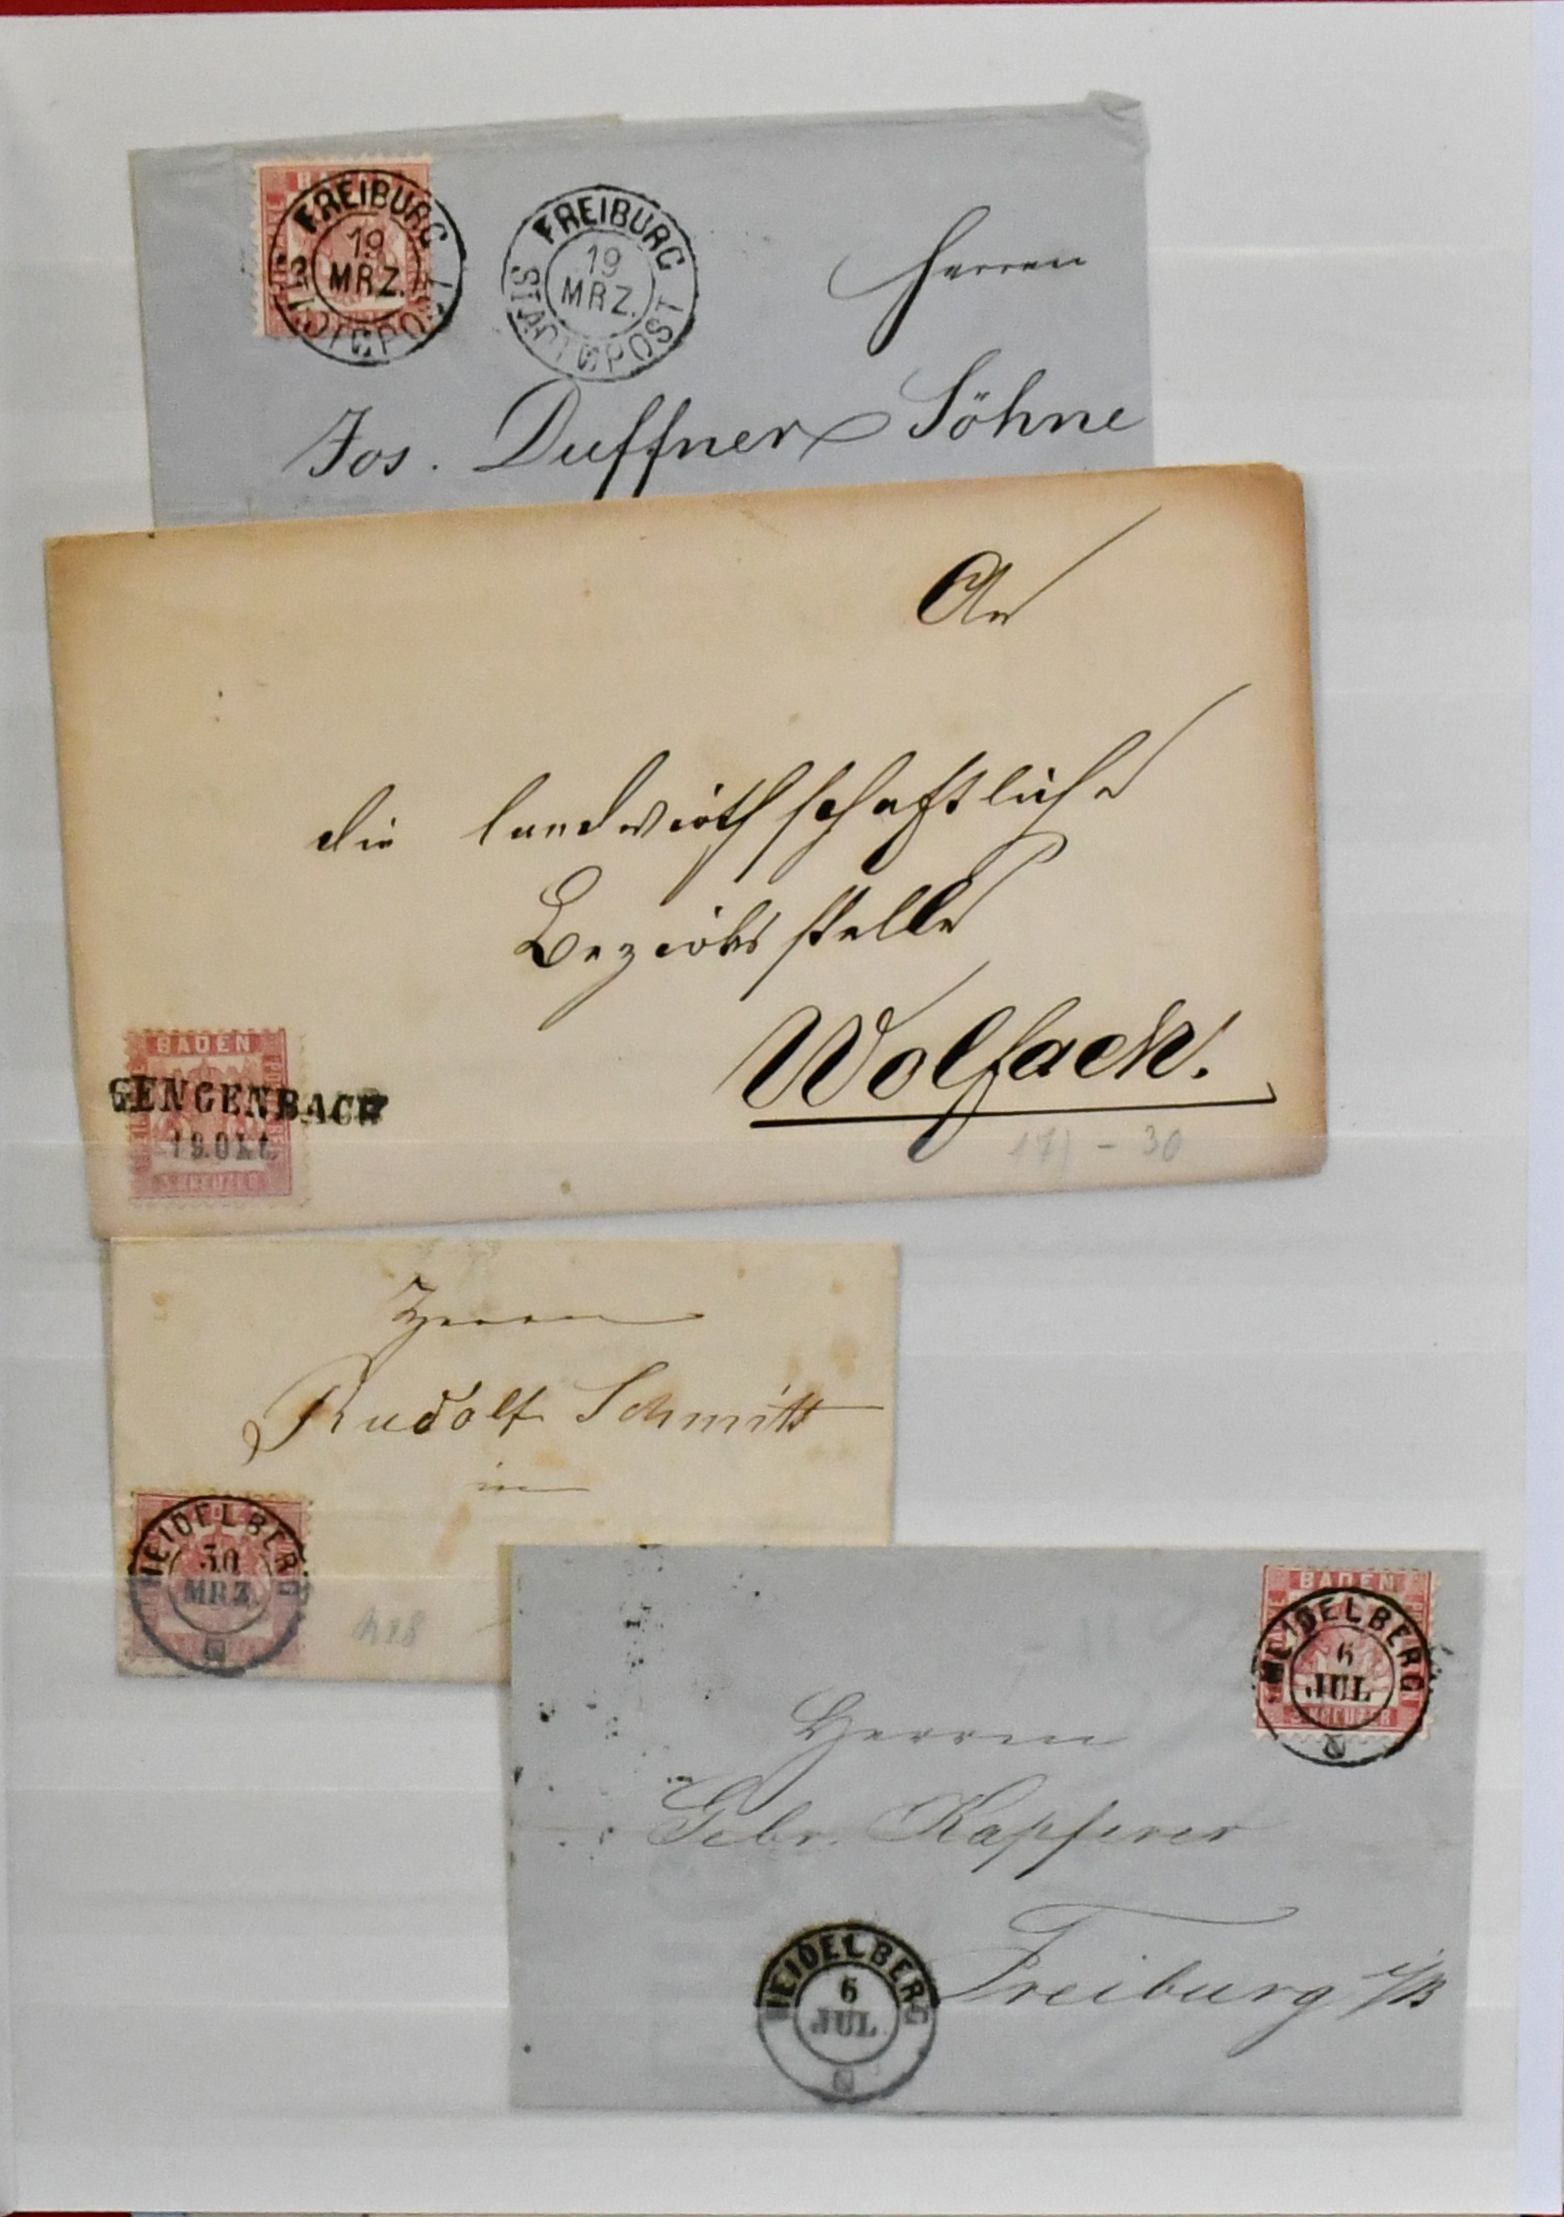 FREIBURG
19
MRZ.
STADTPOST
FREIBURG
19
MRZ.
STADTPOST
Herren
Jos. Duffner Söhne
An
die landwirthschaftliche
Bezirksstelle
Wolfach.
BADEN
GENGENBACH
19. Okt.
3 KREUZER
- 30
Herrn
Rudolf Schmitt
in
HEIDELBERG
30
MRZ.
BADEN
HEIDELBERG
6
JUL
3 KREUZER
Herren
Gebr. Kapferer
Freiburg i/B
HEIDELBERG
6
JUL